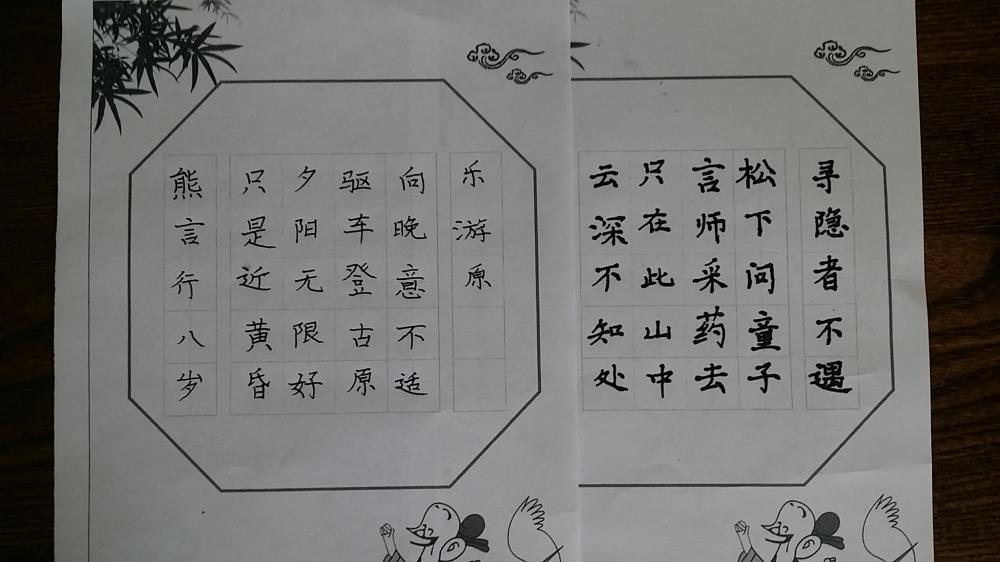 寻隐者不遇
松下问童子
言师采药去
只在此山中
云深不知处
乐游原
向晚意不适
驱车登古原
夕阳无限好
只是近黄昏
熊言行八岁